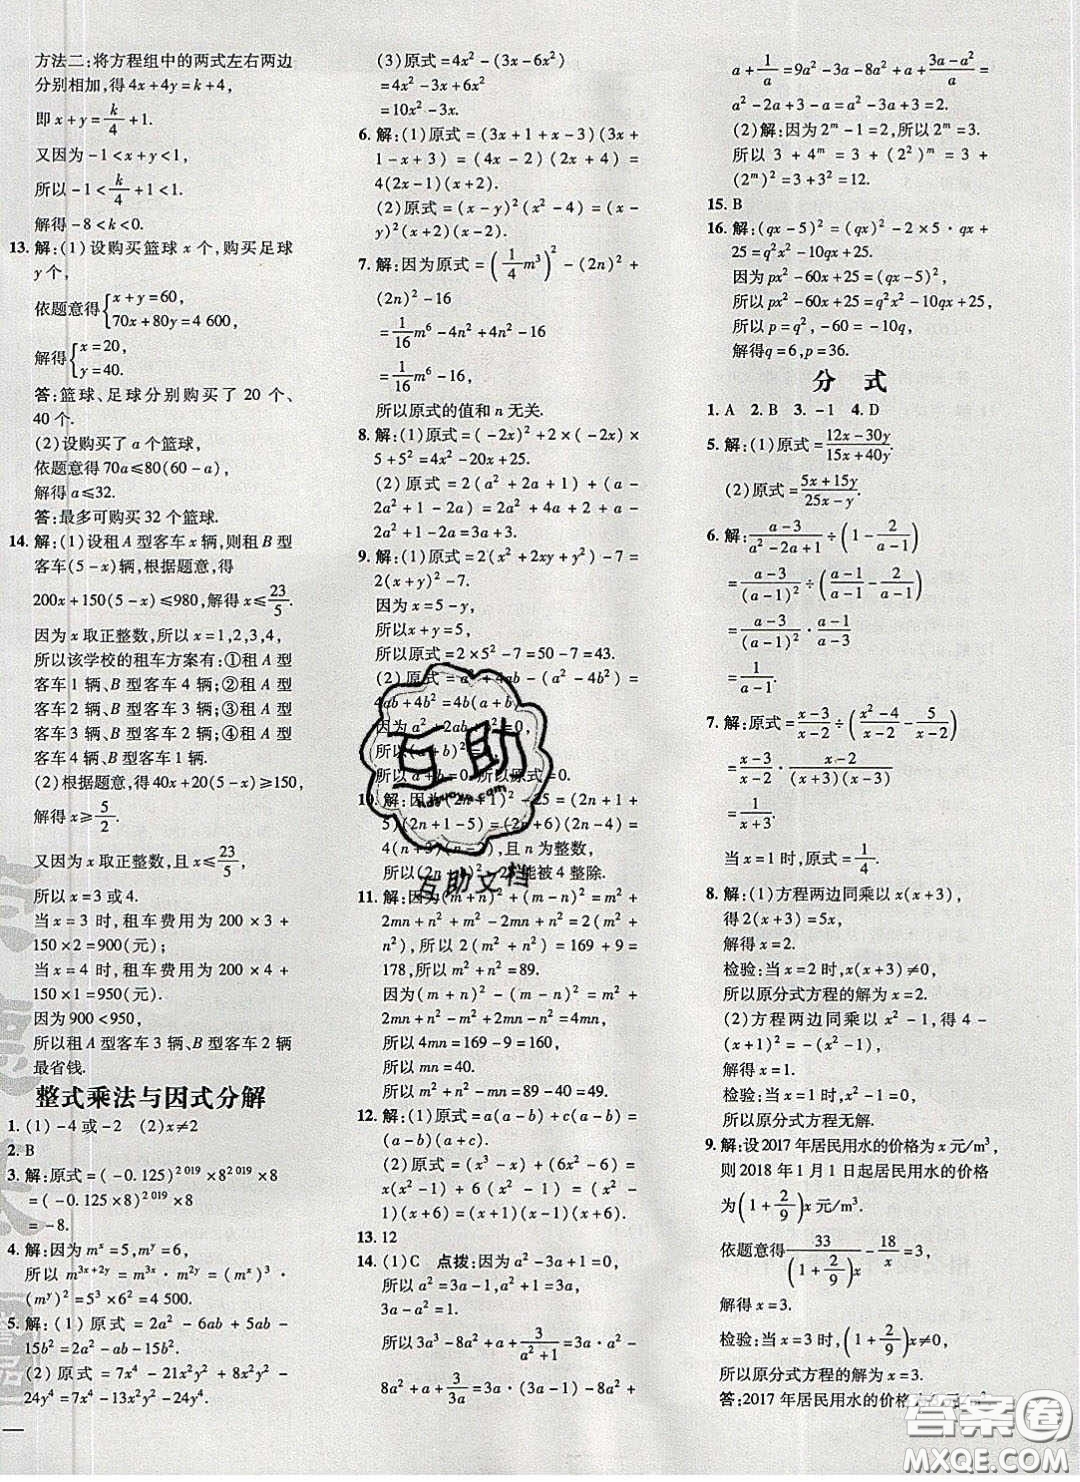 方法二:将方程组中的两式左右两边
分别相加,得4x+4y=k+4,
即x+y=k/4+1.
又因为-1<x+y<1,
所以-1<k/4+1<1.
解得-8<k<0.
13. 解:(1)设购买篮球x个,购买足球
y个,
依题意得{x+y=60,
70x+80y=4 600,
解得{x=20,
y=40.
答:篮球、足球分别购买了20个、
40个.
(2)设购买了a个篮球,
依题意得70a≤80(60-a),
解得a≤32.
答:最多可购买32个篮球.
14. 解:(1)设租A型客车x辆,则租B型
客车(5-x)辆,根据题意,得
200x+150(5-x)≤980,解得x≤23/5.
因为x取正整数,所以x=1,2,3,4,
所以该学校的租车方案有:①租A型
客车1辆、B型客车4辆;②租A型
客车2辆、B型客车3辆;③租A型
客车3辆、B型客车2辆;④租A型
客车4辆、B型客车1辆.
(2)根据题意,得40x+20(5-x)≥150,
解得x≥5/2.
又因为x取正整数,且x≤23/5,
所以x=3或4.
当x=3时,租车费用为200×3+
150×2=900(元);
当x=4时,租车费用为200×4+
150×1=950(元).
因为900<950,
所以租A型客车3辆、B型客车2辆
最省钱.
整式乘法与因式分解
1. (1)-4或-2 (2)x≠2
2. B
3. 解:原式=(-0.125)²⁰¹⁹×8²⁰¹⁹×8
=(-0.125×8)²⁰¹⁹×8
=-8.
4. 解:因为mˣ=5,mʸ=6,
所以m³ˣ⁺²ʸ=m³ˣ·m²ʸ=(mˣ)³·
(mʸ)²=5³×6²=4 500.
5. 解:(1)原式=2a²-6ab+5ab-
15b²=2a²-ab-15b².
(2)原式=7x⁴-21x²y²+8x²y²-
24y⁴=7x⁴-13x²y²-24y⁴.
(3)原式=4x²-(3x-6x²)
=4x²-3x+6x²
=10x²-3x.
6. 解:(1)原式=(3x+1+x-3)(3x+
1-x+3)=(4x-2)(2x+4)=
4(2x-1)(x+2).
(2)原式=(x-y)(x²-4)=(x-
y)(x+2)(x-2).
7. 解:因为原式=(1/4m³)²-(2n)²+
(2n)²-16
=1/16m⁶-4n²+4n²-16
=1/16m⁶-16,
所以原式的值和n无关.
8. 解:(1)原式=(-2x)²+2×(-2x)×
5+5²=4x²-20x+25.
(2)原式=(a²+2a+1)+(2a-
2a²+1-a)-1=a²+2a+1+2a-
2a²+1-2=3a+a².
9. 解:(1)原式=2(x²+2xy+y²)-7=
2(x+y)²-7.
因为x=5-y,
所以x+y=5,
所以原式=2×5²-7=50-7=43.
(2)原式=4ab-(a²-4b²)=
4ab+4b²=4b(a+b
因为a²+2ab =0,
所以(a+b)²= ,
所以a+b=0.所以原式=0.
10. 解:因为(2n+1)²-25=(2n+1+
5)(2n+1-5)=(2n+6)(2n-4)=
4(n+3)(n-2),且n为整数,
所以(2n 能被4整除.
11. 解:因为(m+n)²+(m-n)²=m²+
2mn+n²+m²-2mn+n²=2(m²+
n²),所以2(m²+n²)=169+9=
178,所以m²+n²=89.
因为(m+n)²-(m-n)²=m²+
2mn+n²-m²+2mn-n²=4mn,
所以4mn=169-9=160,
所以mn=40,
所以m²+n²-mn=89-40=49.
12. 解:(1)原式=a(a-b)+c(a-b)=
(a-b)(a+c).
(2)原式=(x³-x)+(6x²-6)=
x(x²-1)+6(x²-1)=(x²-
1)(x+6)=(x+1)(x-1)(x+6).
13. 12
14. (1)C 点拨:因为a²-3a+1=0,
所以a²=3a-1,a²+1=3a,
3a³=9a²-3a.
所以3a³-8a²+a+3/(a²+1)=3a·a²-
8a²+a+3/3a=3a(3a-1)-8a²+
a+1/a=9a²-3a-8a²+a+(3a-a²)/a=
a²-2a+3-a=a-a+3=2.
(2)解:因为2ᵐ-1=2,所以2ᵐ=3,
所以3+4ᵐ=3+(2²)ᵐ=3+
(2ᵐ)²=3+3²=12.
15. B
16. 解:(qx-5)²=(qx)²-2×5·qx+
25=q²x²-10qx+25.
因为px²-60x+25=(qx-5)²,
所以px²-60x+25=q²x²-10qx+25,
所以p=q²,-60=-10q,
解得q=6,p=36.
分 式
1. A 2. B 3. -1 4. D
5. 解:(1)原式=(12x-30y)/(15x+40y).
(2)原式=(5x+15y)/(25x-y).
6. 解:(a-3)/(a²-2a+1)÷(1-2/(a-1))
=(a-3)/(a-1)²÷((a-1)/(a-1)-2/(a-1))
=(a-3)/(a-1)²·(a-1)/(a-3)
=1/(a-1).
7. 解:原式=(x-3)/(x-2)÷((x²-4)/(x-2)-5/(x-2))
=(x-3)/(x-2)·(x-2)/((x+3)(x-3))
=1/(x+3).
当x=1时,原式=1/4.
8. 解:(1)方程两边同乘以x(x+3),
得2(x+3)=5x,
解得x=2.
检验:当x=2时,x(x+3)≠0,
所以原分式方程的解为x=2.
(2)方程两边同乘以x²-1,得4-
(x+1)²=-(x²-1),
解得x=1.
检验:当x=1时,x²-1=0,
所以原分式方程无解.
9. 解:设2017年居民用水的价格为x元/m³,
则2018年1月1日起居民用水的价格
为(1+2/9)x元/m³.
依题意得33/((1+2/9)x)-18/x=3,
解得x=3.
检验:当x=3时,(1+2/9)x≠0,
所以原分式方程的解为x=3.
答:2017年居民用水的价格
互助
互助文档
答案圈
MXQE.COM